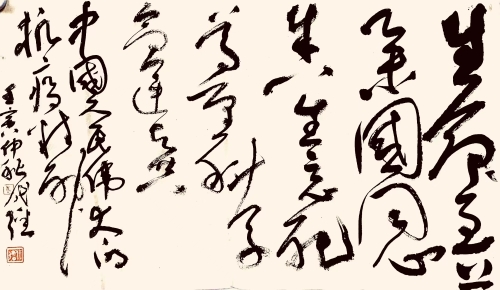 生命至上
举國同心
舍生忘死
尊重科学
命運与共
中國人民伟大的
抗疫精神
壬寅仲秋